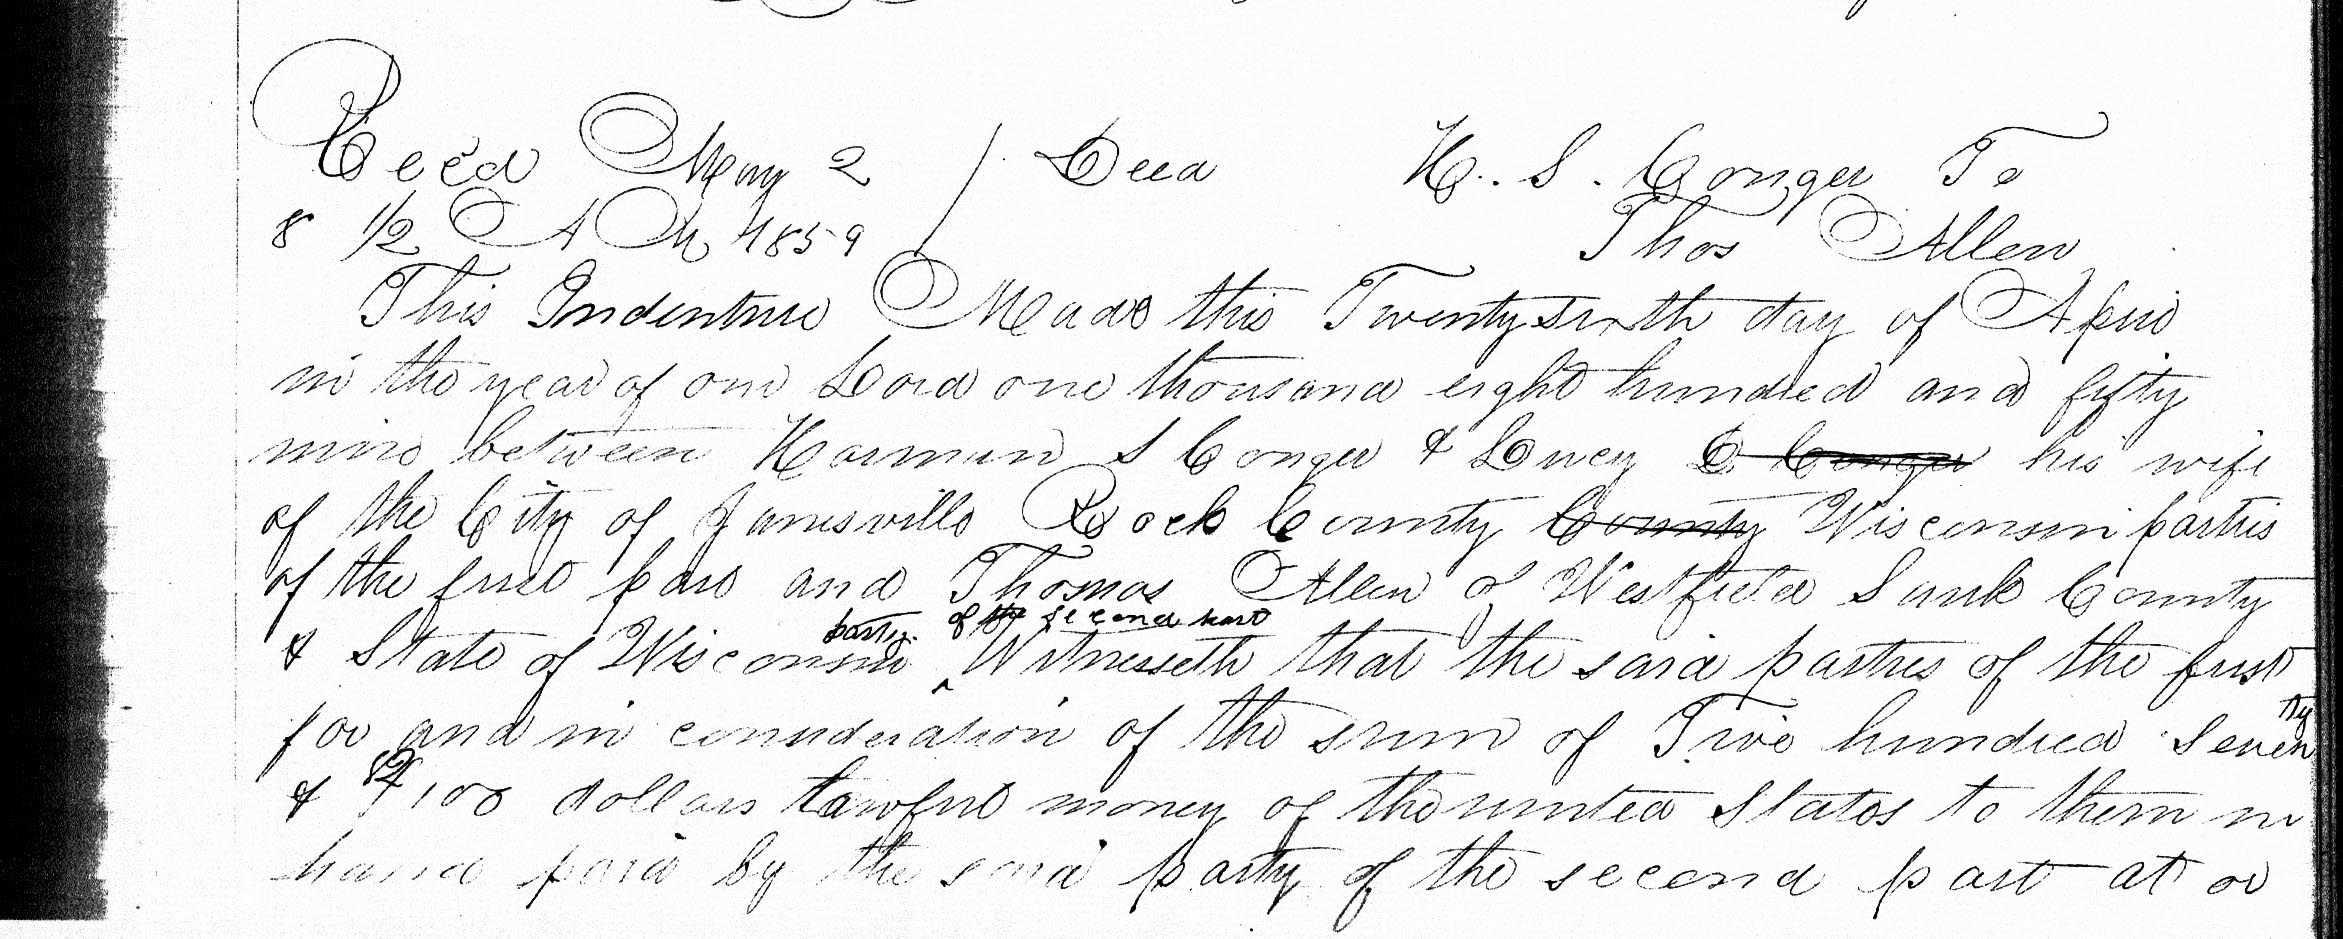 Recd May 2 / Deed H. S. Conger To
8 1/2 A M 1859 Thos Allen
This Indenture Made this Twenty sixth day of April
in the year of our Lord one thousand eight hundred and fifty
nine between Harman S Conger & Lucy D Conger his wife
of the City of Janesville Rock County County Wisconsin parties
of the first part and Thomas Allen of Westfield Sauk County
party of the second part
& State of Wisconsin ^ Witnesseth that the said parties of the first
for and in consideration of the sum of Two hundred Seventy
& /100 dollars lawful money of the united States to them in
hand paid by the said party of the second part at or